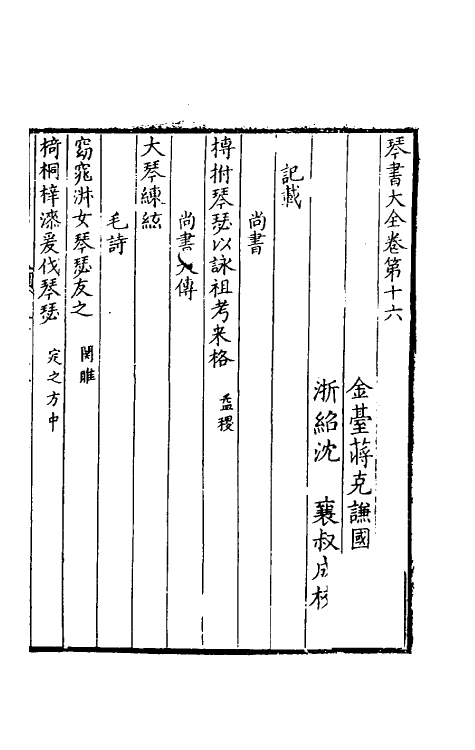 琴書大全卷第十六
金臺蔣克謙國
浙紹沈 襄叔成校
記載
尚書
搏拊琴瑟以詠祖考来格 益稷
尚書大傳
大琴練絃
毛詩
窈窕淑女琴瑟友之 関雎
椅桐梓漆爰伐琴瑟 定之方中